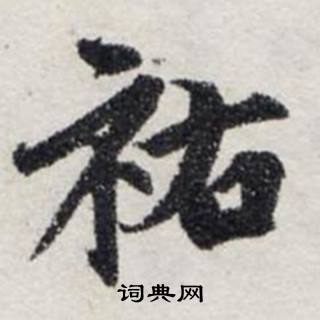 祐
词典网